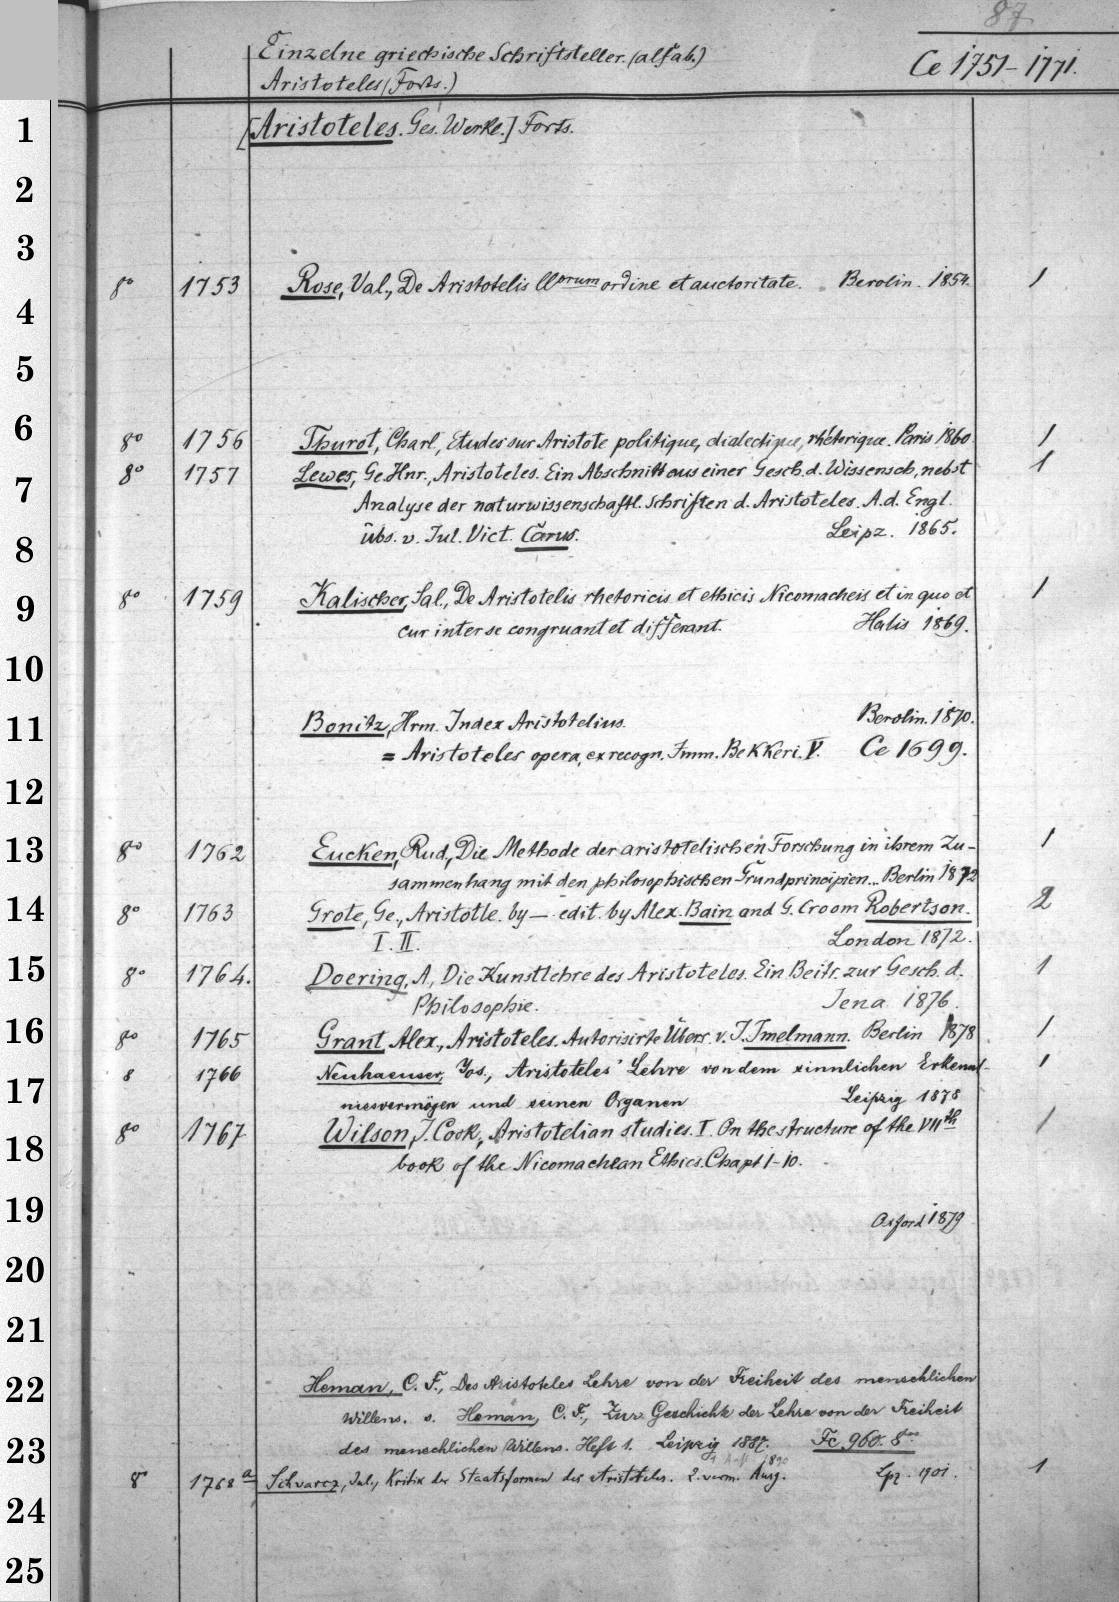 87
Einzelne griechische Schriftsteller. (alfab.)
Ce 1751-1771.
Aristoteles (Forts.)
1 [Aristoteles. Ges. Werke.] Forts.
2
3
8° 1753 Rose, Val., De Aristotelis llorum ordine et auctoritate. Berolin. 1854. 1
4
5
6 8° 1756 Thurot, Charl., Etudes sur Aristote politique, dialectique, rhétorique. Paris 1860 1
8° 1757 Lewes, Ge. Hnr., Aristoteles. Ein Abschnitt aus einer Gesch. d. Wissensch. nebst 1
7 Analyse der naturwissenschaftl. Schriften d. Aristoteles. A. d. Engl.
8 übs. v. Jul. Vict. Carus. Leipz. 1865.
9 8° 1759 Kalischer, Sal., De Aristotelis rhetoricis et ethicis Nicomacheis et in quo et 1
cur inter se congruant et differant. Halis 1869.
10
11 Bonitz, Hrm. Index Aristotelius. Berolin. 1870.
= Aristoteles opera, ex recogn. Imm. Bekkeri. V. Ce 1699.
12
13 8° 1762 Eucken, Rud., Die Methode der aristotelischen Forschung in ihrem Zu- 1
sammenhang mit den philosophischen Grundprincipien... Berlin 1872
14 8° 1763 Grote, Ge., Aristotle. by — edit. by Alex. Bain and G. Croom Robertson. 2
I. II. London 1872.
15 8° 1764. Doering, A., Die Kunstlehre des Aristoteles. Ein Beitr. zur Gesch. d. 1
Philosophie. Jena 1876.
16 8° 1765 Grant, Alex., Aristoteles. Autorisirte Übers. v. J. Imelmann. Berlin 1878 1
8 1766 Neuhaeuser, Jos., Aristoteles' Lehre von dem sinnlichen Erkennt- 1
17 nissvermögen und seinen Organen Leipzig 1878
18 8° 1767 Wilson, J. Cook, Aristotelian studies. I. On the structure of the VIIth 1
book of the Nicomachean Ethics. Chapt 1-10.
19 Oxford 1879
20
21
22 Heman, C. F., Des Aristoteles Lehre von der Freiheit des menschlichen
Willens. s. Heman, C. F., Zur Geschichte der Lehre von der Freiheit
23 des menschlichen Willens. Heft 1. Leipzig 1887. Fc 960. 8°
8° 1768a Schvarcz, Jul., Kritik der Staatsformen des Aristoteles. 2. verm. Ausg. Lpz. 1901. 1
24
25